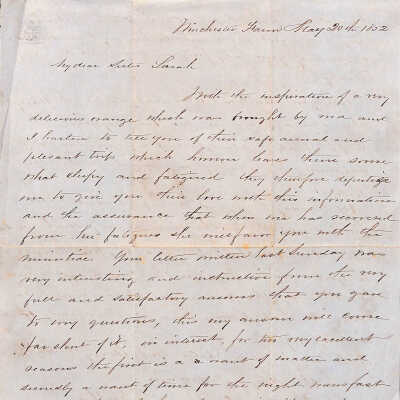 Winchester Farm May 20th 1852
My dear Sister Sarah
With the inspiration of a very
delicious orange which was brought by ma and
I hasten to tell you of their safe arrival and
plesant trip which however leaves them some
what sleepy and fatigued they therefore deputize
me to give you their love with this information
and the assurance that when ma has recovered
from her fatigues she will favor you with the
minutiae. Your letter written last Sunday was
very interesting and instructive from the very
full and satisfactory answers that you gave
to my questions, this my answer will come
far short of it, in interest, for two very excellent
reasons the first is a a want of matter and
secondly a want of time for the night